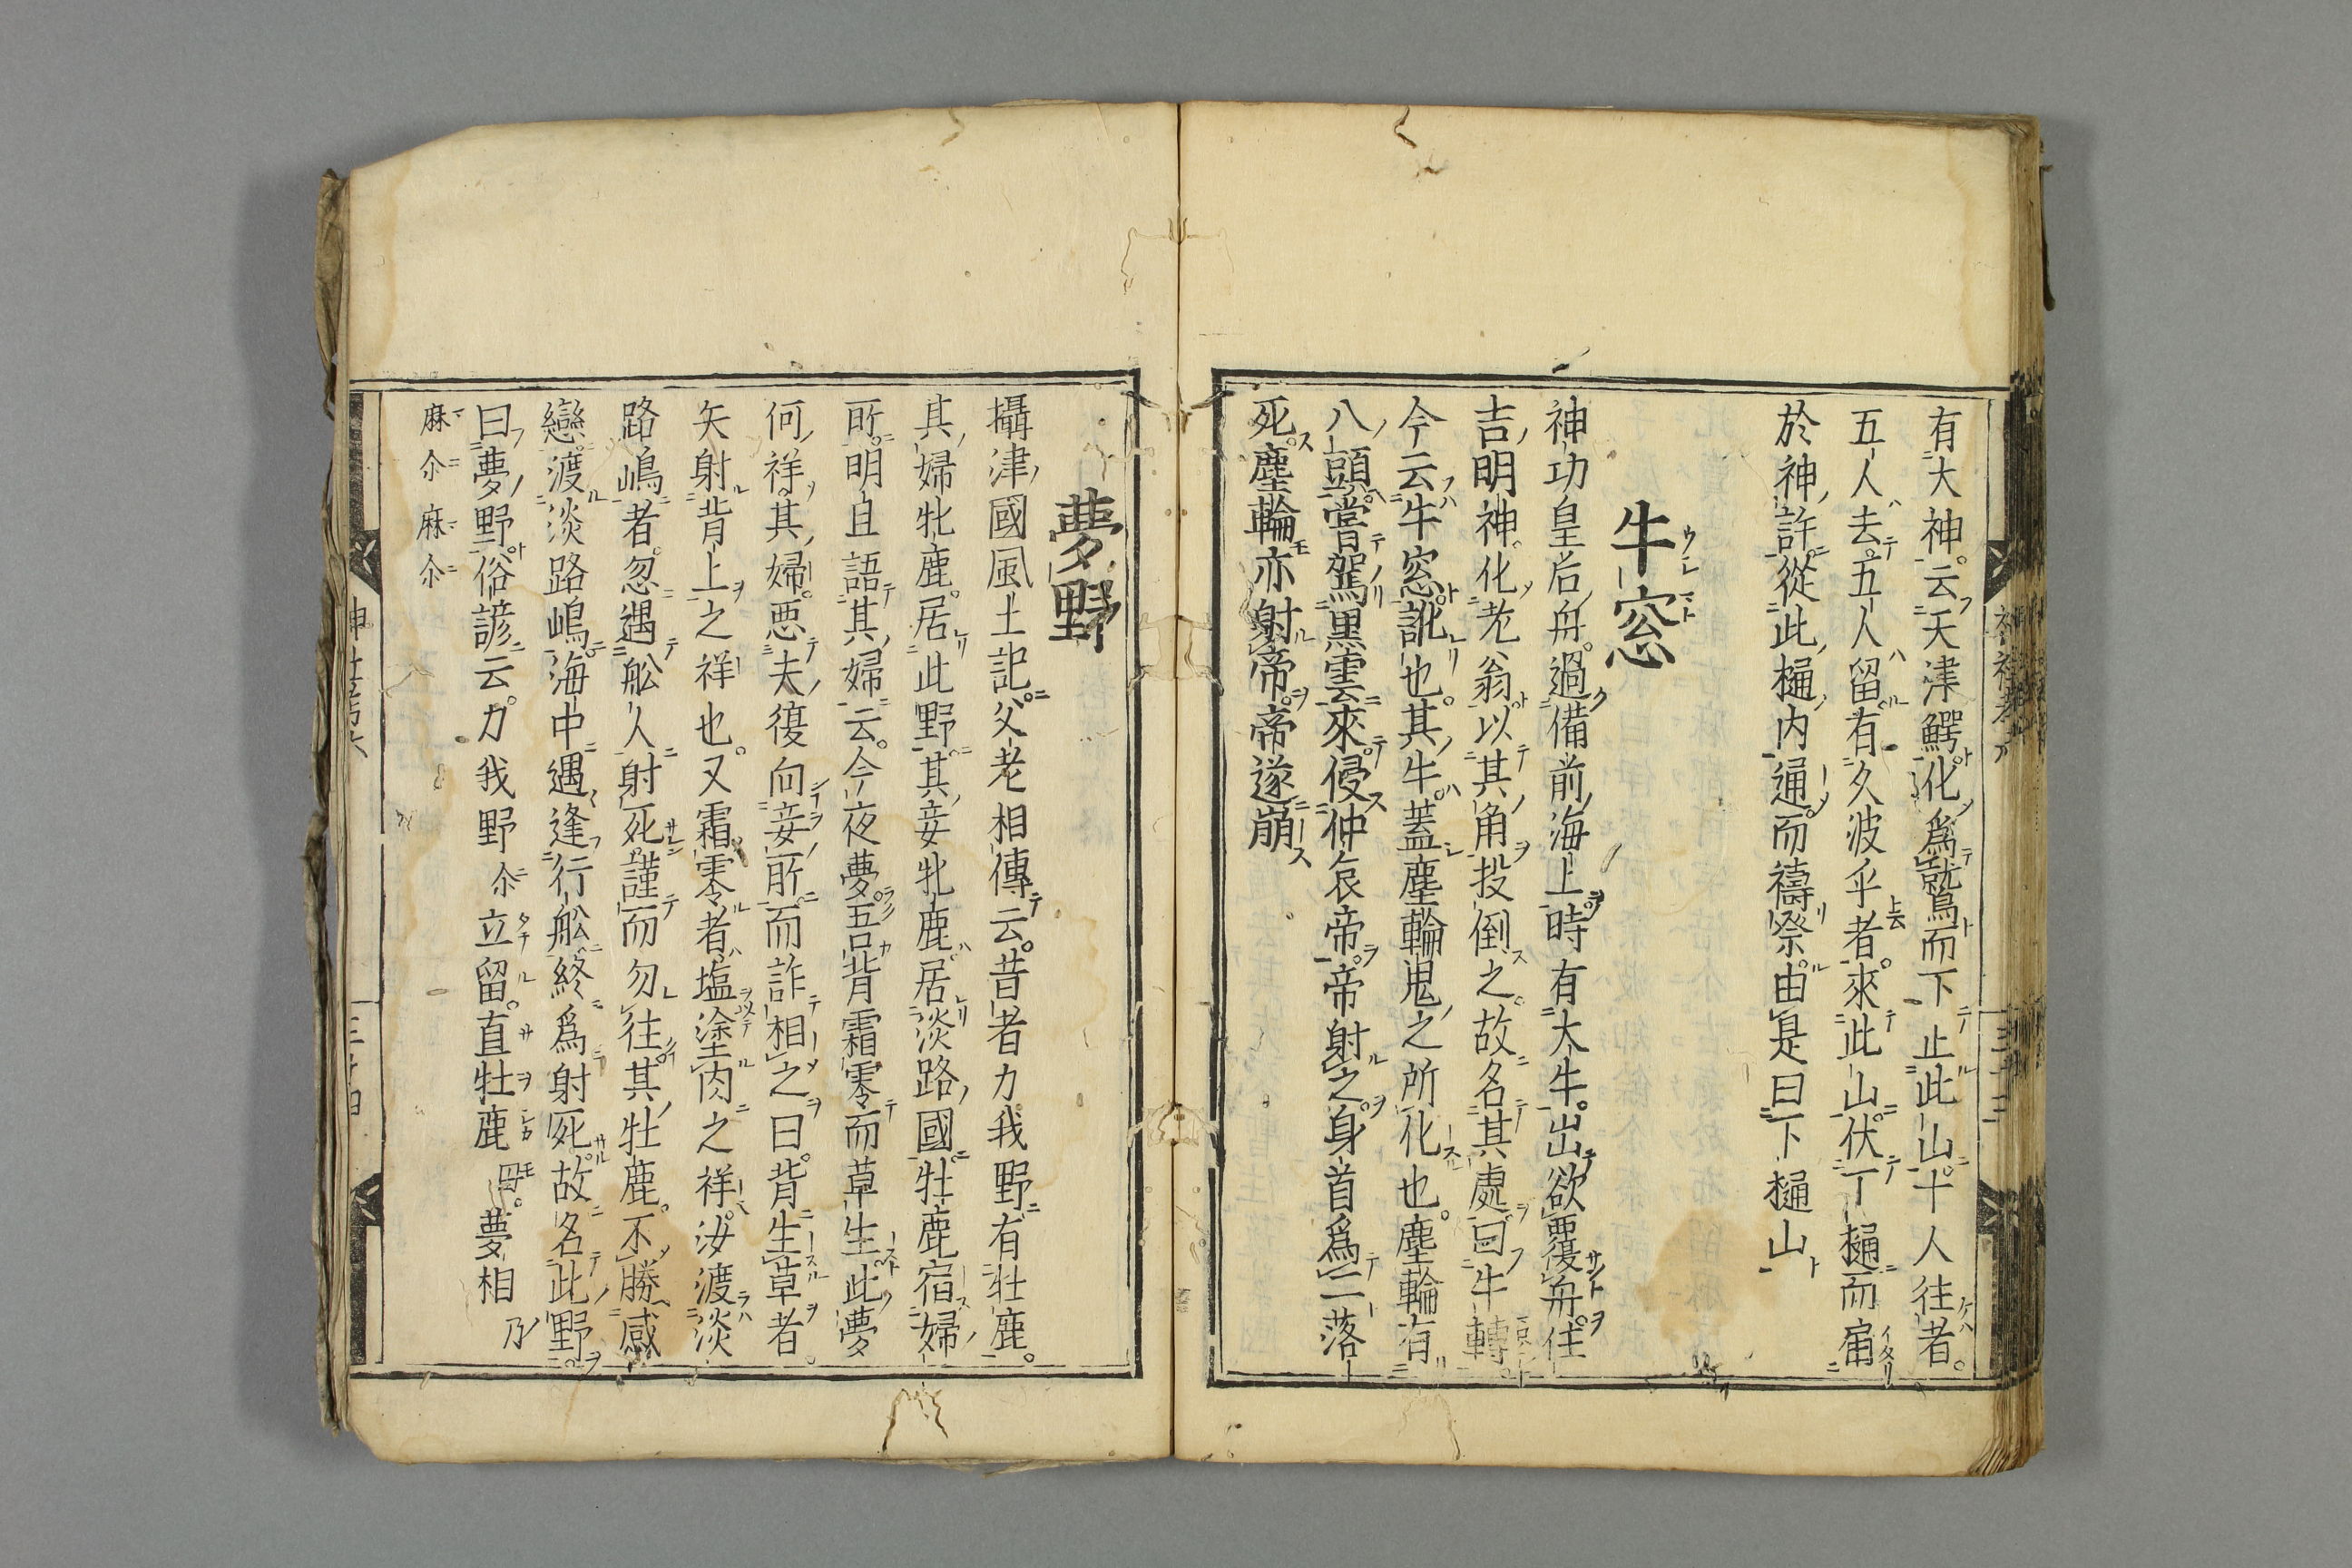 有大神。云天津鰐化爲鷲而下止此山。十人往者。
五人去。五人留。有久波乎者。來此山伏下樋而
於神許從此樋内通。而禱祭。由是曰下樋山
牛窓
神功皇后舟。過備前海上時有大牛。出欲覆舟。住
吉明神。化老翁以其角投倒之。故名其處曰牛轉
今云牛窓訛也。其牛蓋塵輪鬼之所化也。塵輪有
八頭。嘗駕黒雲來。侵仲哀帝。帝射之。身首爲二落
死。塵輪亦射帝。帝遂崩
夢野
攝津國風土記。父老相傳云。昔者刀我野有牡鹿。
其婦牝鹿。居此野。其妾牝鹿居淡路國。牡鹿宿婦
所。明旦語其婦云。今夜夢。吾背霜零而草生。此夢
何祥。其婦。惡夫復向妾所。而詐相之曰。背生草者。
矢射背上之祥也。又霜零者。塩塗肉之祥。汝渡淡
路嶋者。忽遇舩人射死。謹而勿往。其牡鹿。不勝感
戀。渡淡路嶋。海中遇逢行舩終爲射死。故名此野。
曰夢野。俗諺云。刀我野尒立留。直牡鹿母。夢相乃
麻尒麻尒